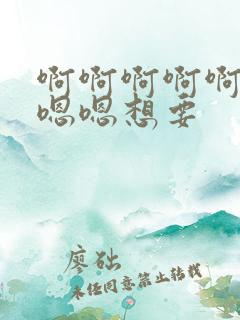 啊啊啊啊啊
嗯嗯想要
廖础
未经同意禁止转载